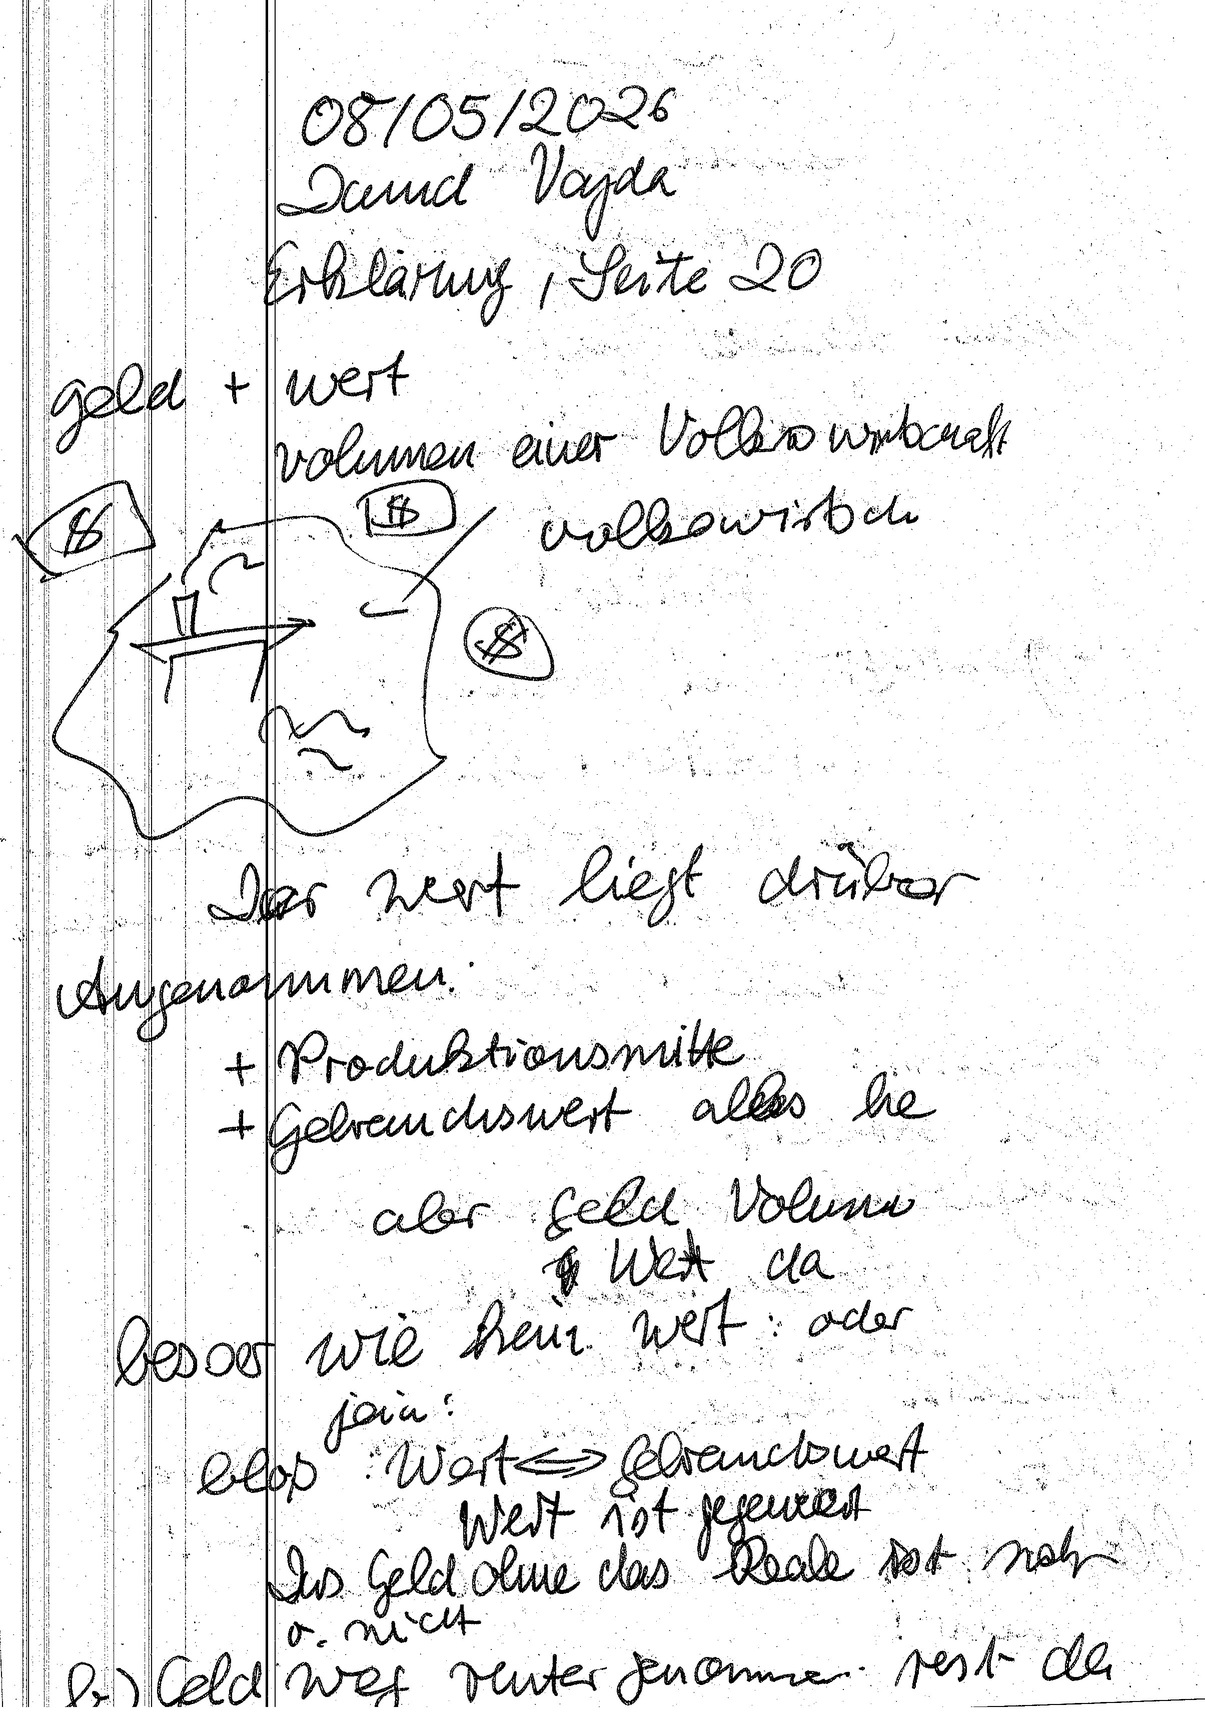 08/05/2026
David Vajda
Erklärung, Seite 20
geld + wert
volumen einer Volkswirtschaft
$ $
volkswirtsch
$
Der wert liegt drüber
Angenommen:
+ Produktionsmitte
+ Gebrauchswert alles
aber geld Volumen
Wert da
besser wie kein wert: oder
jein:
blos: Wert <=> Gebrauchswert
Wert ist
Das Geld ohne das Reale ist
o. nicht
b.) Geld weg runter genommen rest da